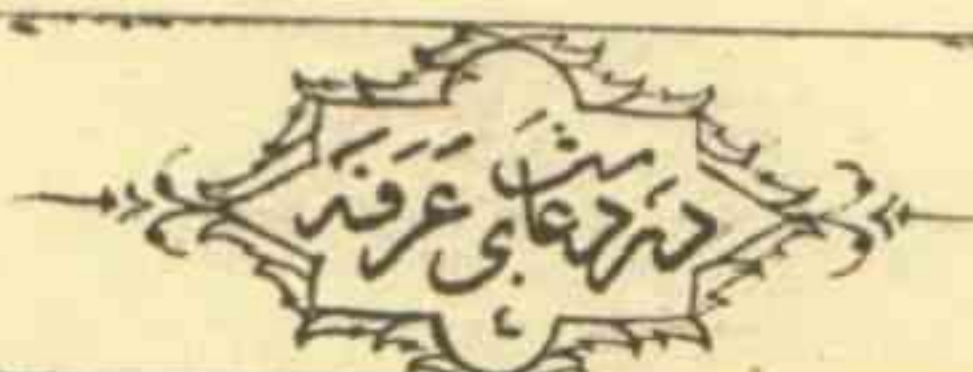 در دعای شَب عَرَفَه